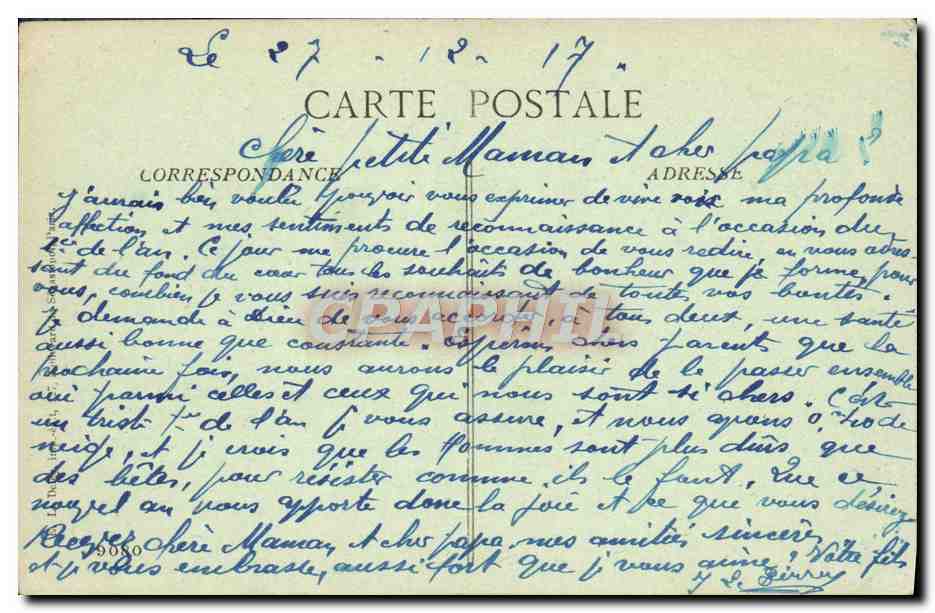 Le 27 - 12 - 17 -
CARTE POSTALE
Chère petite Maman et cher papa
CORRESPONDANCE
ADRESSE
J'aurais bien voulu pouvoir vous exprimer de vive voix ma profonde
affection et mes sentiments de reconnaissance à l'occasion du
de l'an. Ce jour me procure l'occasion de vous redire, en vous adres-
sant du fond du cœur tous les souhaits de bonheur que je forme pour
vous, combien je vous suis reconnaissant de toutes vos bontés.
Je demande à Dieu de vous accorder, à tous deux, une santé
aussi bonne que constante. Espérons chers parents que la
prochaine fois, nous aurons le plaisir de le passer ensemble
oui parmi celles et ceux qui nous sont si chers. C'est
un triste 1er de l'an je vous assure, et nous avons 0,m40 de
neige, et je crois que les hommes sont plus durs que
des bêtes, pour résister comme ils le font. Que ce
nouvel an vous apporte donc la joie et ce que vous désirez
Recevez chère Maman et cher papa, mes amitiés sincères
et je vous embrasse, aussi fort que je vous aime. Votre fils
79080
CPAPHIL